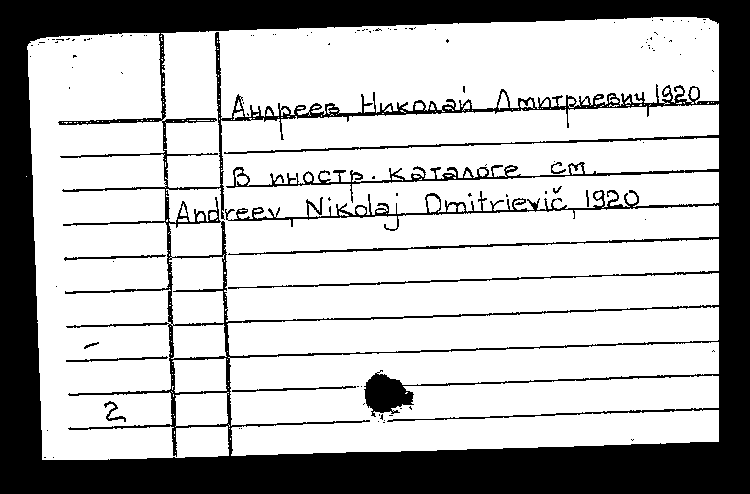 Андреев, Николай Дмитриевич, 1920
В иностр. каталоге см.
Andreev, Nikolaj Dmitrievič, 1920
2